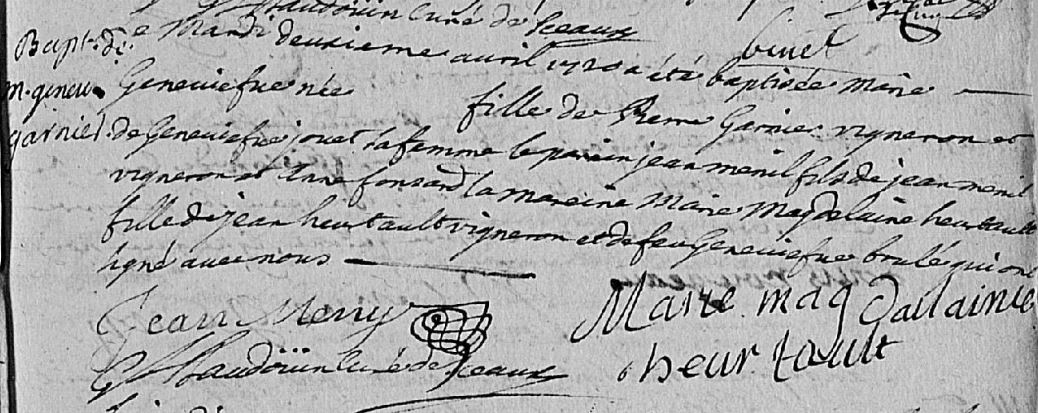 Baudoüin curé de Sceaux
binet
Bapt. de
m. geneu.
garnier
Le Mardi deuxieme avril 1720 a été baptisée Marie
Geneuiefue née fille de Pierre Garnier vigneron et
de Geneuiefue jouet sa femme le parein jean menil fils de jean menil
vigneron et Anne fonsard la mareine Marie Magdelaine heurtault
fille de jean heurtault vigneron et de feu Geneuiefue boulé qui ont
signé auec nous
Jean Meny
Marie mag dallainne
heur tault
Baudoüin curé de Sceaux